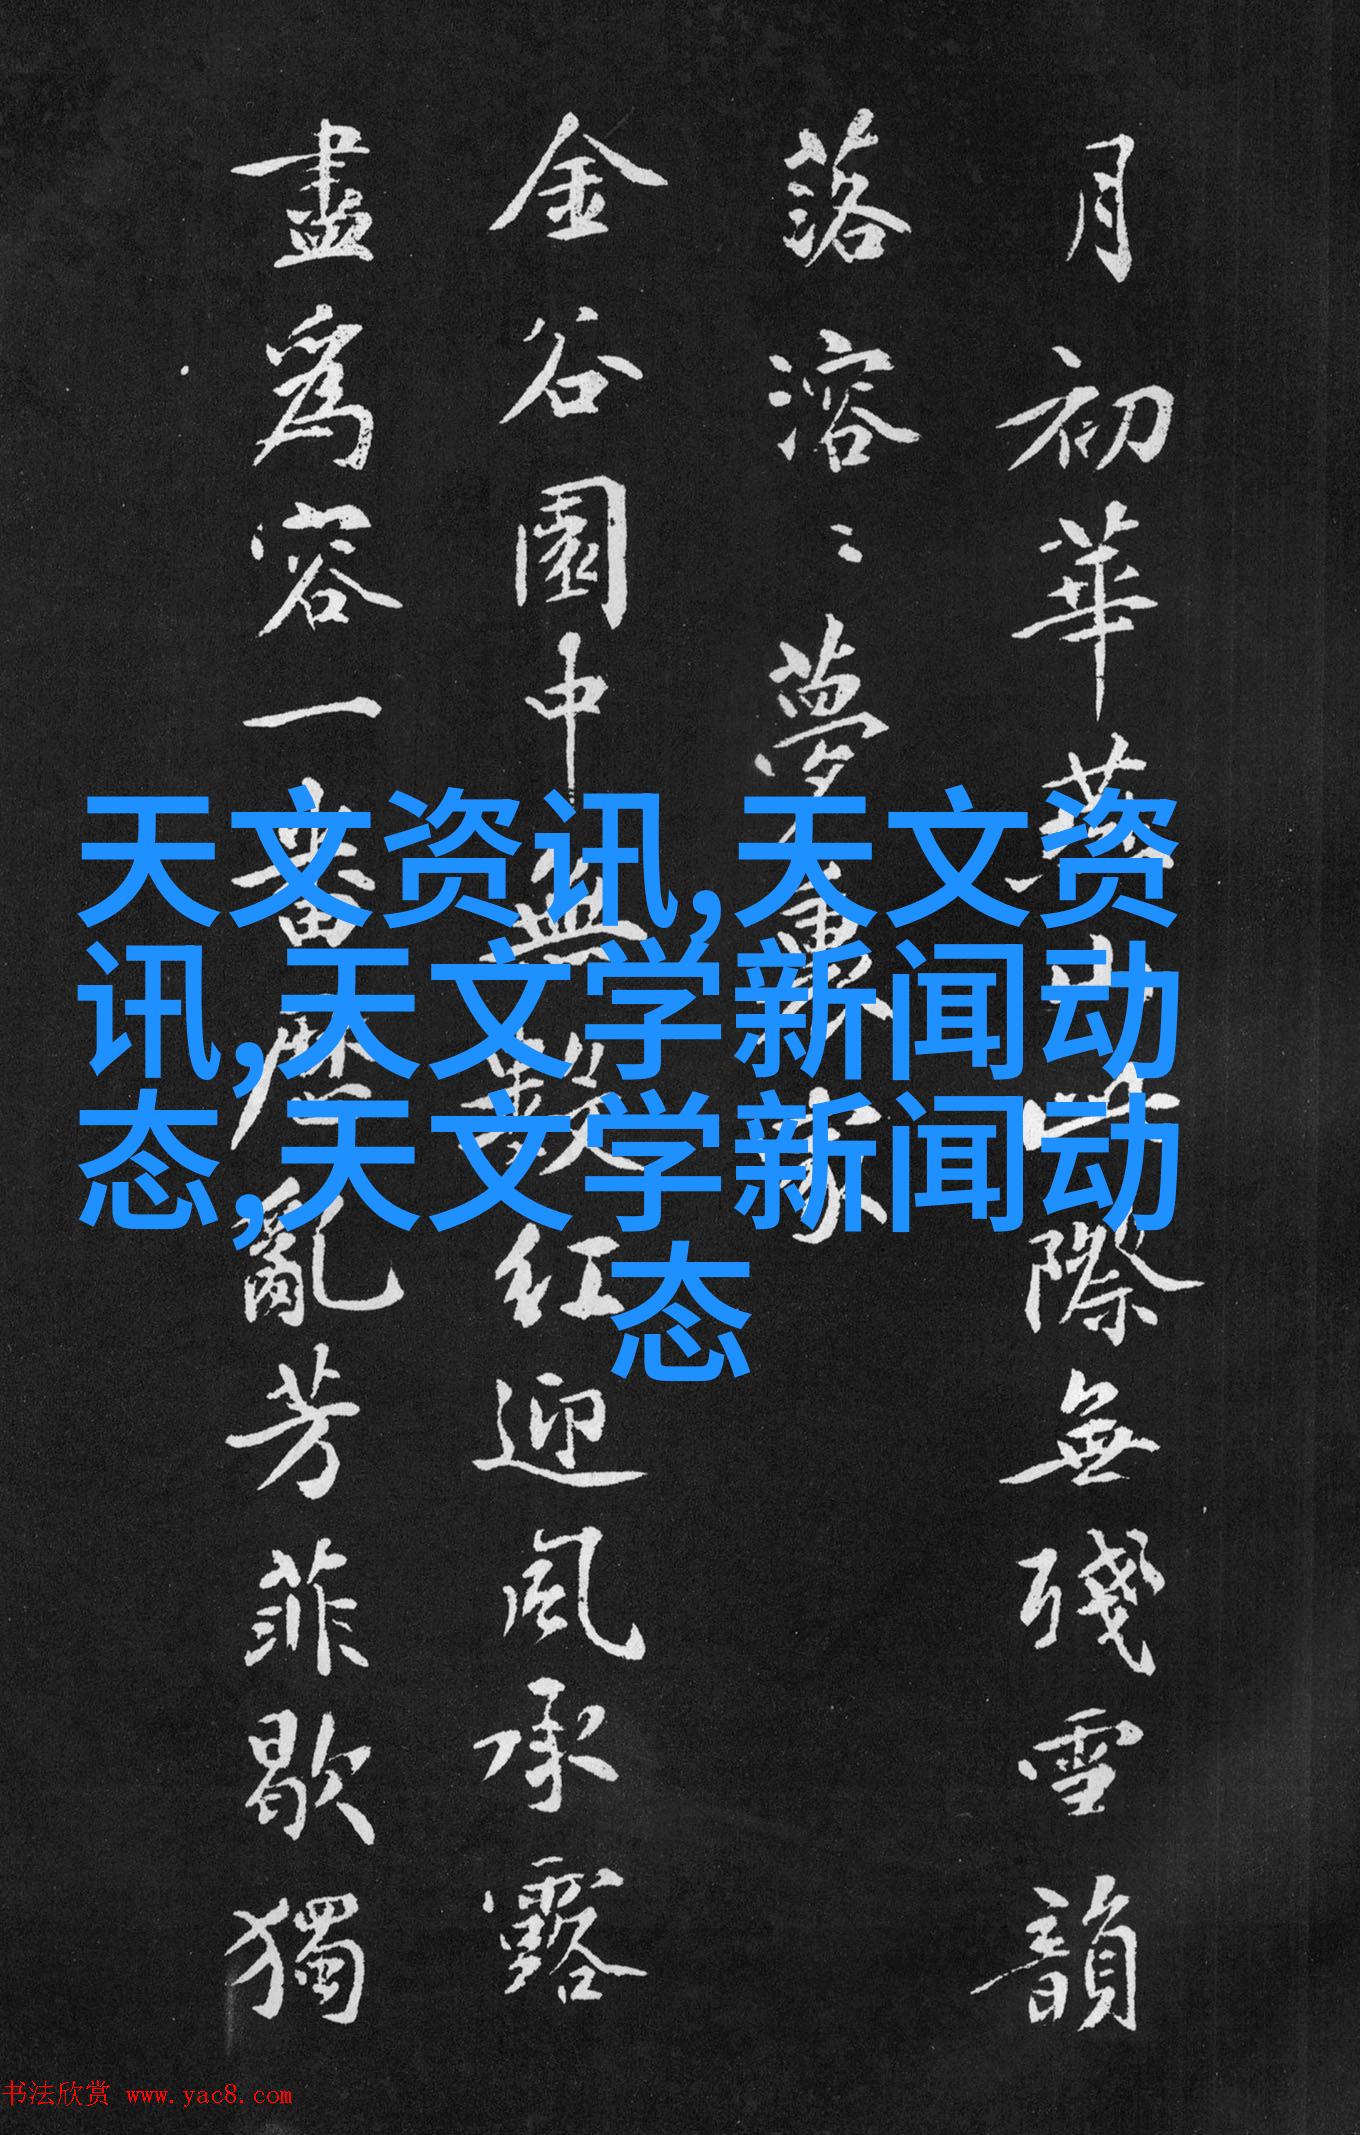 天文资讯,天文资
讯,天文学新闻动
态,天文学新闻动
态
月初華山際無殘雪韻
落溶〻夢家
金谷園中無數紅迎風承露
盡為容一番歷亂芳菲歇獨
书法欣赏 www.yac8.com